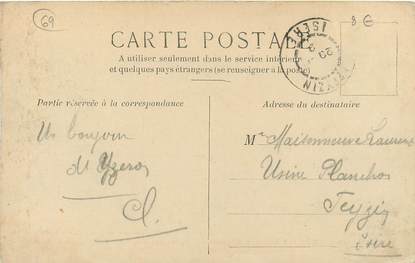 69
8 €
CARTE POSTALE
A utiliser seulement dans le service intérieur
et quelques pays étrangers (se renseigner à la poste)
ISÈRE
Partie réservée à la correspondance
Adresse du destinataire
Un bonjour
d'Yzeron
Mr Maisonneuve
Usine Planchon
Feyzin
Isère